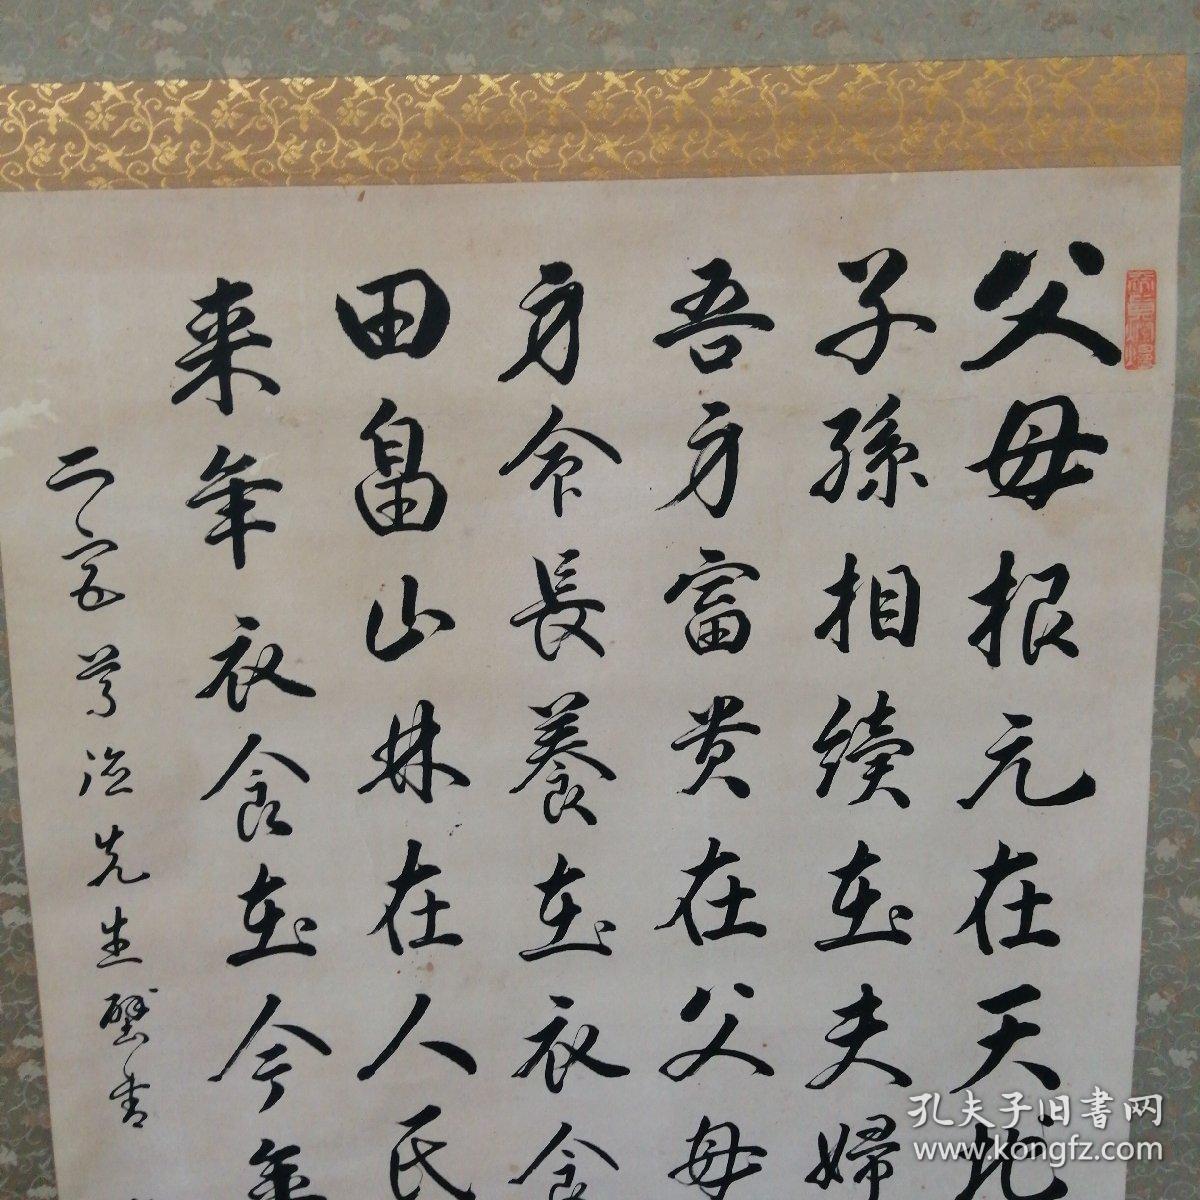 父母根元在天地
子孫相續在夫婦
吾身富貴在父母
身命長養在衣食
田畠山林在人民
来年衣食在今年
二宮尊徳先生壁書
孔夫子旧書网
www.kongfz.com